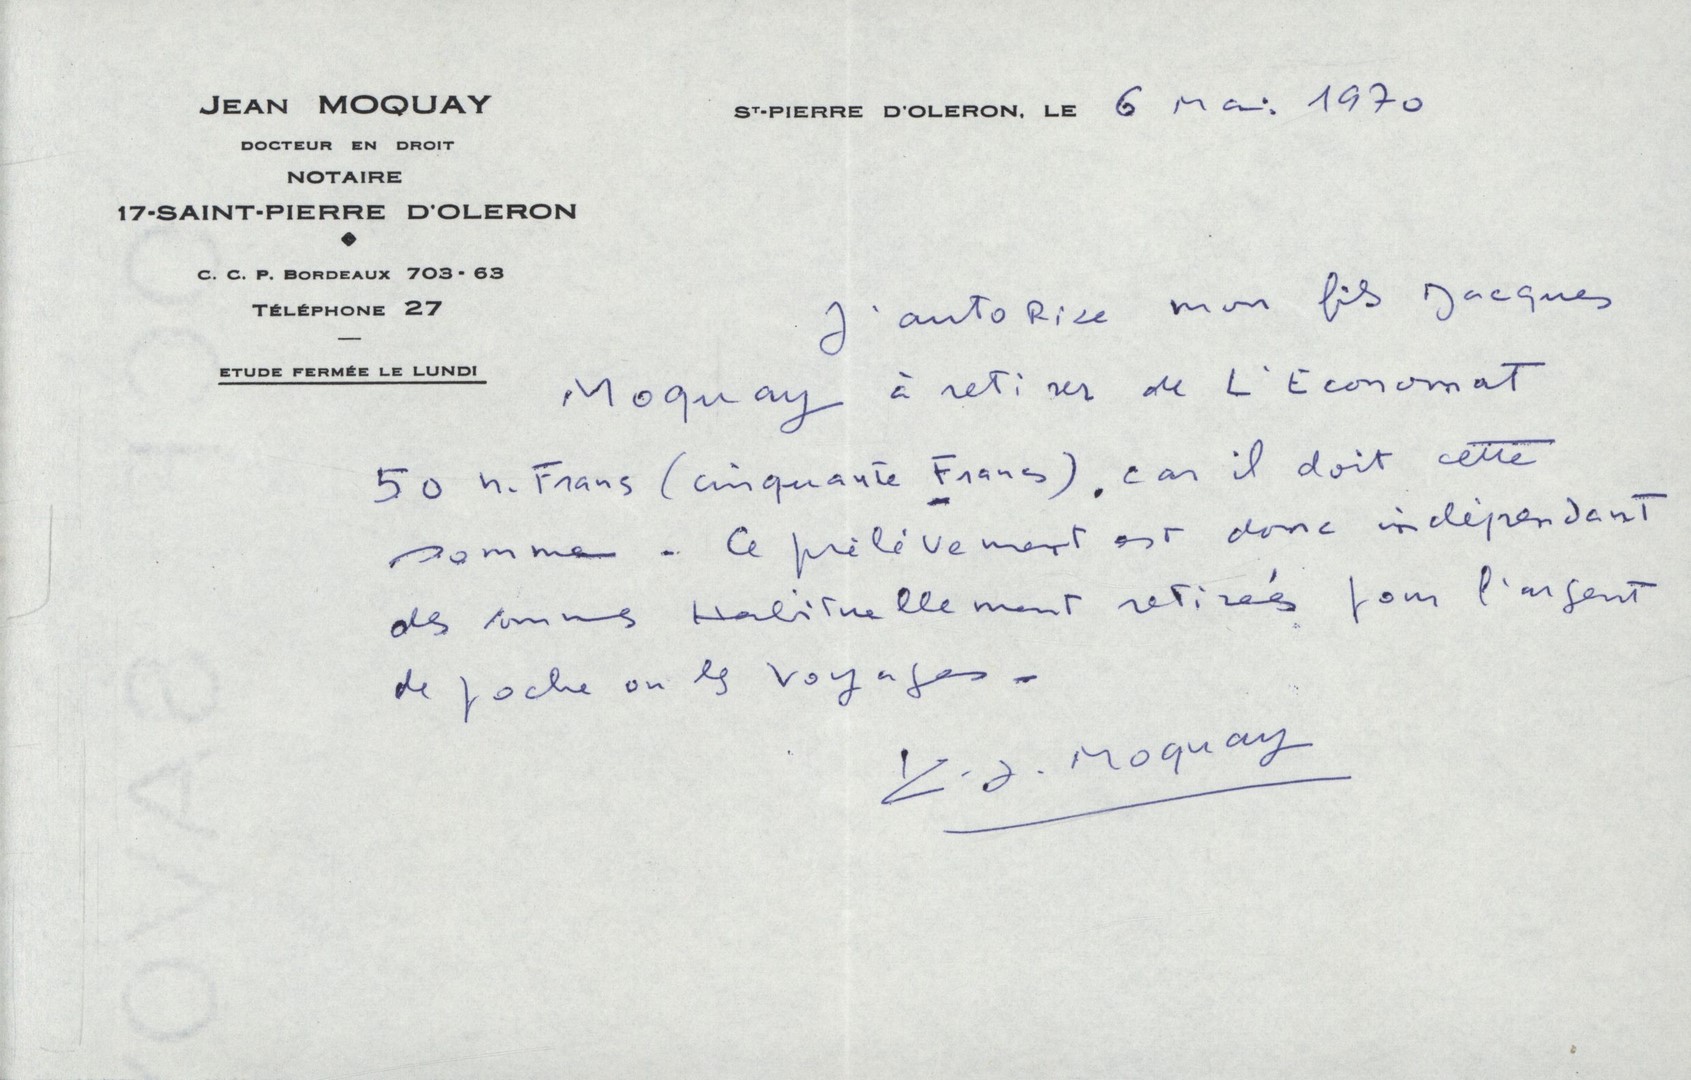 JEAN MOQUAY
DOCTEUR EN DROIT
NOTAIRE
17-SAINT-PIERRE D'OLERON
C. C. P. BORDEAUX 703-63
TÉLÉPHONE 27
ETUDE FERMÉE LE LUNDI
ST-PIERRE D'OLERON, LE 6 Mai 1970
J'autorise mon fils Jacques
Moquay à retirer de L'Economat
50 n. Frans (cinquante Francs), car il doit cette
somme - Ce prélèvement est donc indépendant
des sommes Habituellement retirées pour l'argent
de poche ou les voyages -
J. Moquay